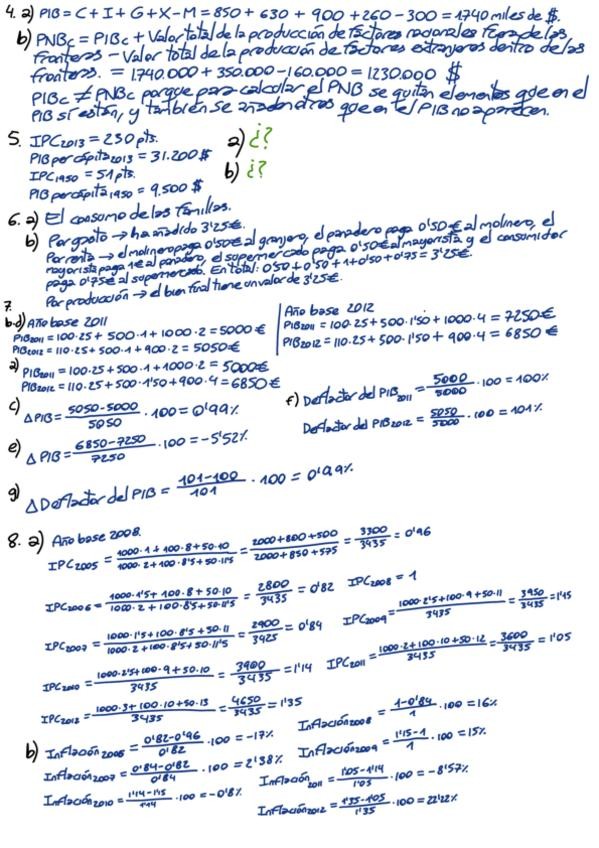 4. a) PIB = C + I + G + X - M = 850 + 630 + 900 + 260 - 300 = 1740 miles de $.
b) PNBc = PIBc + Valor total de la producción de factores nacionales fuera de las
fronteras - Valor total de la producción de factores extranjeros dentro de las
fronteras. = 1740.000 + 350.000 - 160.000 = 1230.000 $
PIBc ≠ PNBc porque para calcular el PNB se quitan elementos que en el
PIB sí están, y también se añaden otros que en el PIB no aparecen.
5. IPC2013 = 230 pts. a) ¿?
PIB per cápita2013 = 31.200 $
IPC1950 = 51 pts. b) ¿?
PIB per cápita1950 = 9.500 $
6. a) El consumo de las familias.
b) Por gasto → ha añadido 3'25€.
Por renta → el molinero paga 0'50€ al granjero, el panadero paga 0'50€ al molinero, el
mayorista paga 1€ al panadero, el supermercado paga 0'50€ al mayorista y el consumidor
paga 0'75€ al supermercado. En total: 0'50 + 0'50 + 1 + 0'50 + 0'75 = 3'25€.
Por producción → el bien final tiene un valor de 3'25€.
7.
b-d) Año base 2011
PIB2011 = 100·25 + 500·1 + 1000·2 = 5000€
PIB2012 = 110·25 + 500·1 + 900·2 = 5050€
Año base 2012
PIB2011 = 100·25 + 500·1'50 + 1000·4 = 7250€
PIB2012 = 110·25 + 500·1'50 + 900·4 = 6850€
a) PIB2011 = 100·25 + 500·1 + 1000·2 = 5000€
PIB2012 = 110·25 + 500·1'50 + 900·4 = 6850€
c) ΔPIB = 5050-5000/5050 · 100 = 0'99%
f) Deflactor del PIB2011 = 5000/5000 · 100 = 100%
Deflactor del PIB2012 = 5050/5000 · 100 = 101%
e) ΔPIB = 6850-7250/7250 · 100 = -5'52%
g) ΔDeflactor del PIB = 101-100/101 · 100 = 0'99%
8. a) Año base 2008.
IPC2005 = 1000·1 + 100·8 + 50·10/1000·2 + 100·8'5 + 50·11'5 = 2000+800+500/2000+850+575 = 3300/3435 = 0'96
IPC2006 = 1000·1'5 + 100·8 + 50·10/1000·2 + 100·8'5 + 50·11'5 = 2800/3435 = 0'82 IPC2008 = 1
IPC2007 = 1000·1'5 + 100·8'5 + 50·11/1000·2 + 100·8'5 + 50·11'5 = 2900/3425 = 0'84 IPC2009 = 1000·2'5 + 100·9 + 50·11/3435 = 3950/3435 = 1'15
IPC2010 = 1000·2'5 + 100·9 + 50·10/3435 = 3900/3435 = 1'14 IPC2011 = 1000·2 + 100·10 + 50·12/3435 = 3600/3435 = 1'05
IPC2012 = 1000·3 + 100·10 + 50·13/3435 = 4650/3435 = 1'35
b) Inflación2006 = 0'82-0'96/0'82 · 100 = -17% Inflación2008 = 1-0'84/1 · 100 = 16%
Inflación2007 = 0'84-0'82/0'84 · 100 = 2'38% Inflación2009 = 1'15-1/1 · 100 = 15%
Inflación2010 = 1'14-1'15/1'14 · 100 = -0'8% Inflación2011 = 1'05-1'14/1'05 · 100 = -8'57%
Inflación2012 = 1'35-1'05/1'35 · 100 = 22'22%